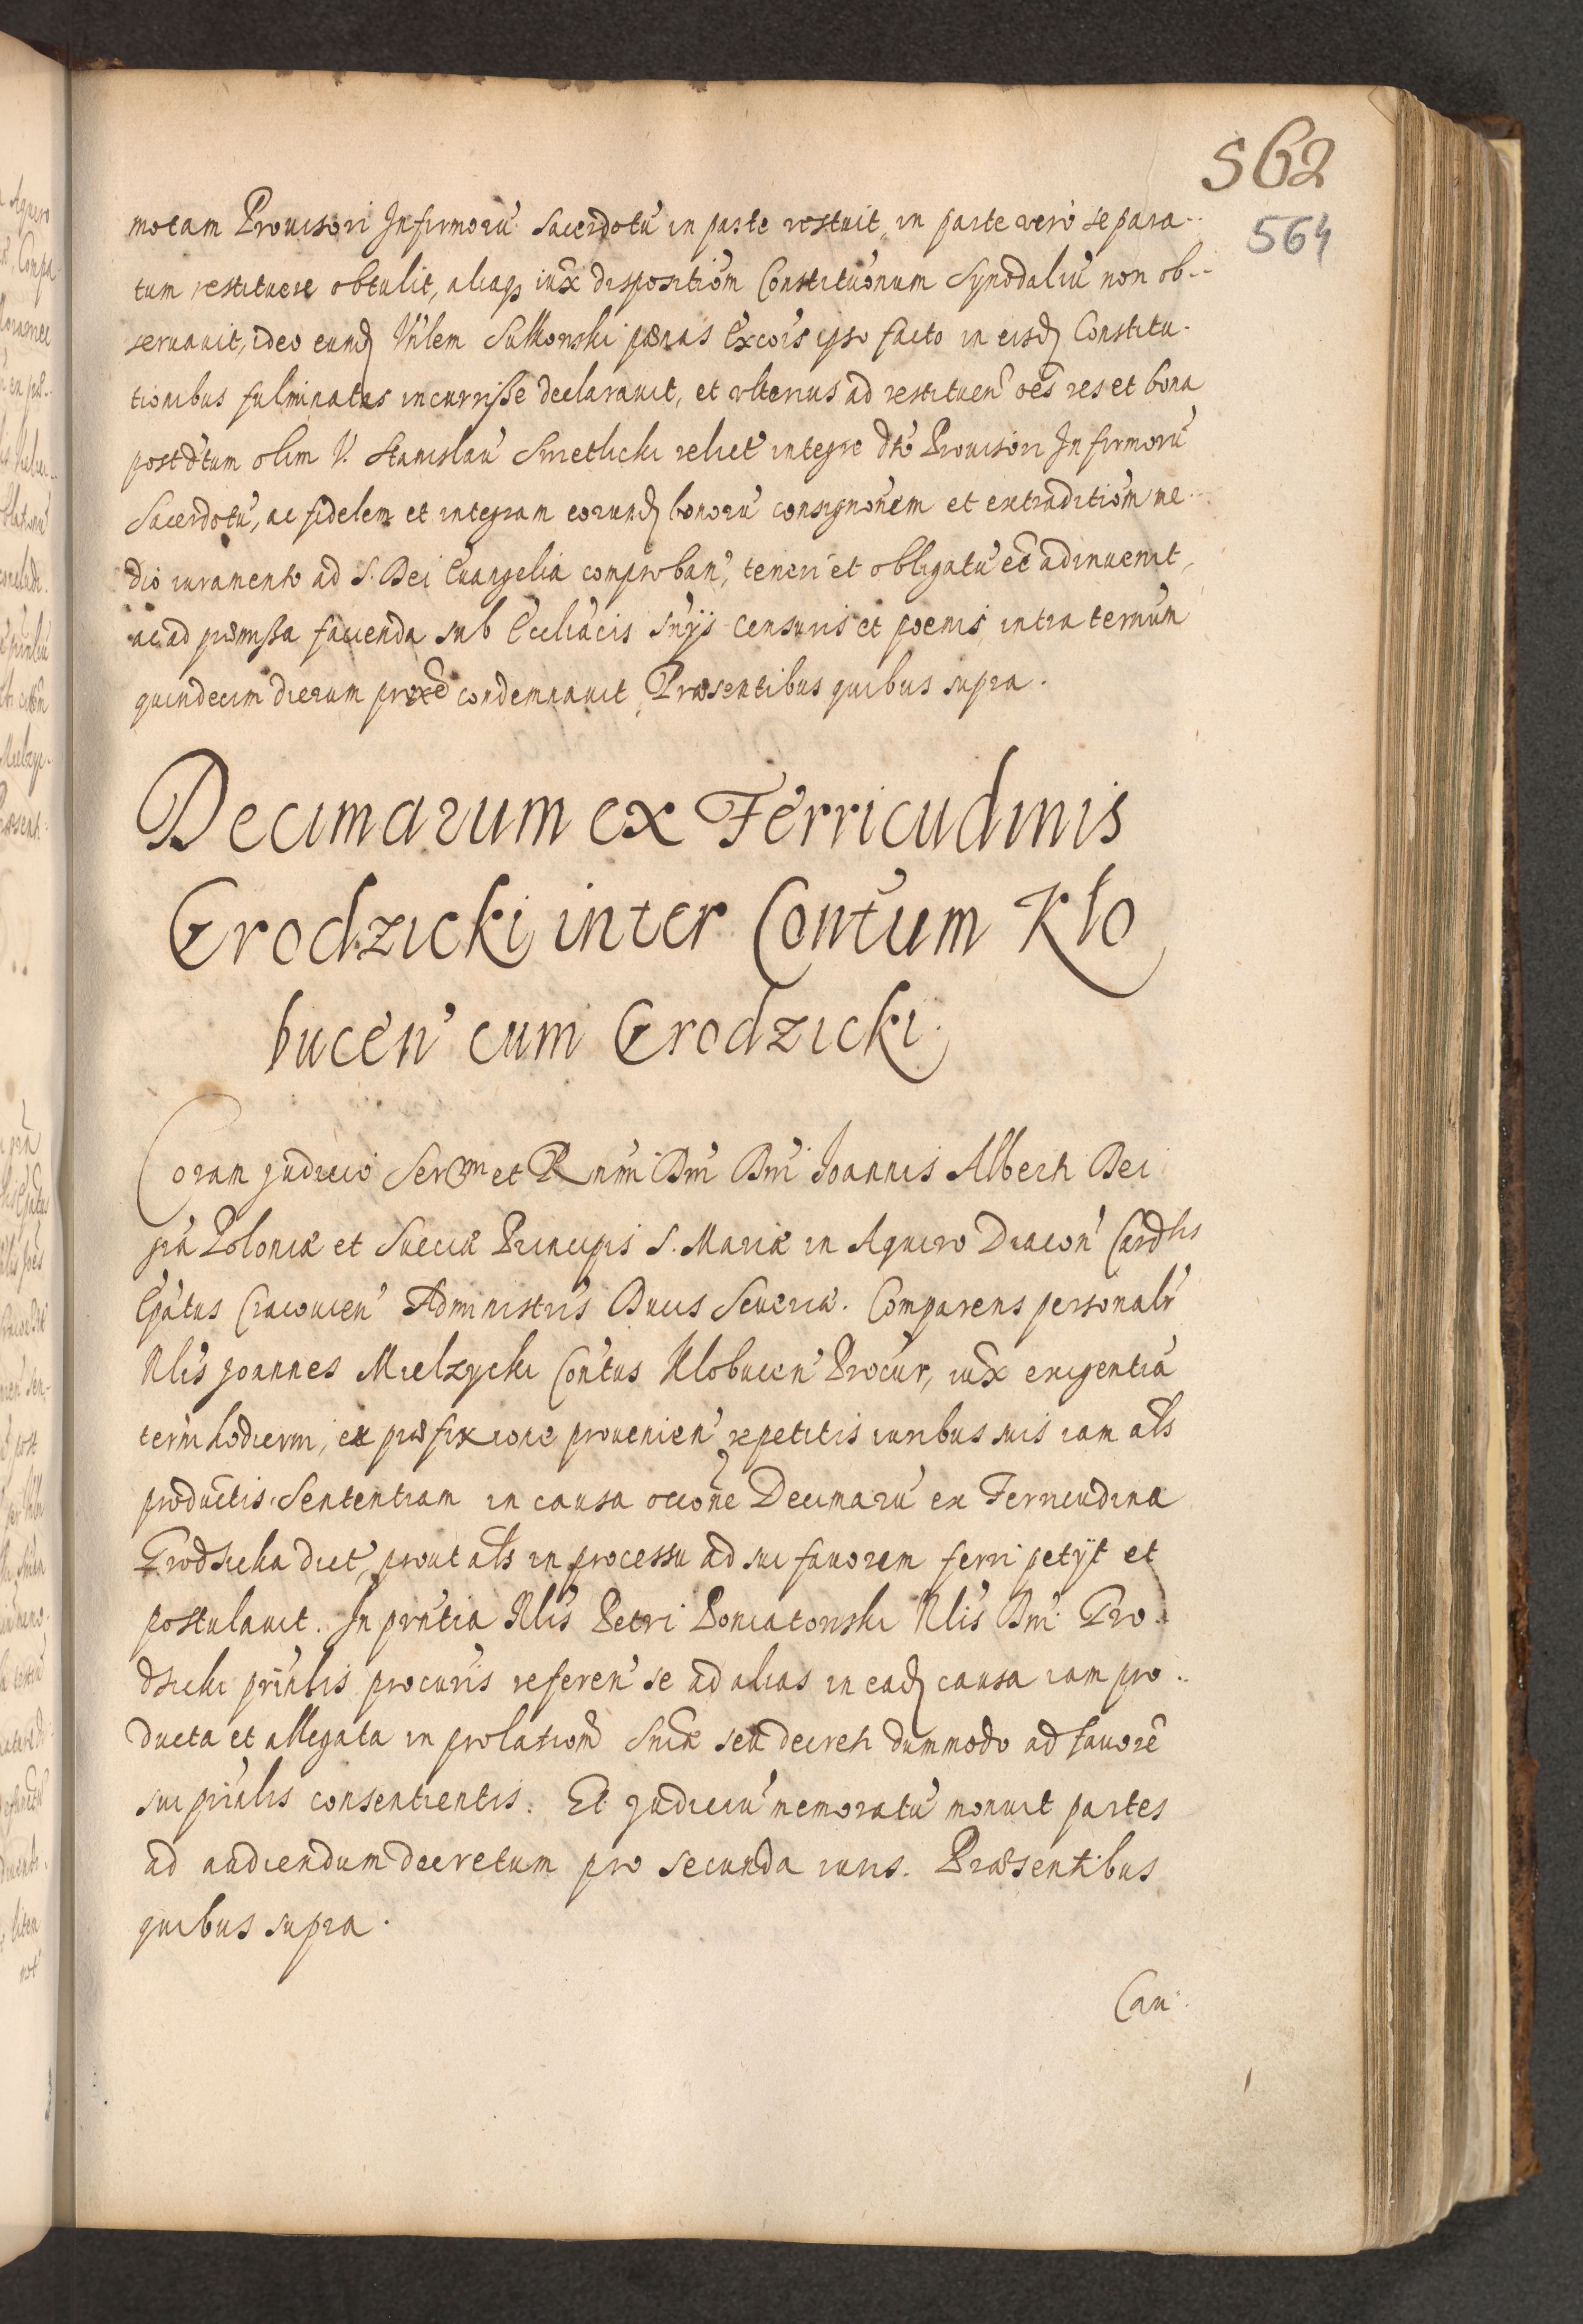 562
564
motam Prouisori Infirmorū Sacerdotū in parte restuit, in parte vero separa-
tum restituere obtulit, aliaqз iux͂ dispositiōm Constituōnum Synodaliū non ob-
seruauit, ideo eund Vn̄lem Sulkowski pœnas Exco͞is ipso facto in eisd Constitu-
tionibus fulminatas incurrisse declarauit, et vlterius ad restituen̄ o͞es res et bona
post d̄tum olim V. Stanislaū Smetlicki relict̄ integre d͞to Prouisori Infirmorū
Sacerdotū, ac fidelem et integram eorund bonorū consignōnem et extraditiōm me-
dio iuramento ad S. Dei Euangelia comproban̄, teneri et obligatū eē adinuenit,
ac ad præmissa facienda sub Eccliācis Sn̄ijs censuris et poenis intra termin̄
quindecim dierum prox͞e condemnauit, Præsentibus quibus supra.
Decimarum ex Ferricudinis
Grodzicki inter Con̄tum Kło
bucen̄ cum Grodzicki.
Coram judicio Ser͞m et Rn͞mi Dn͞i Dn͞i Joannis Alberti Dei
gr̄a Poloniæ et Sueciæ Principis S. Mariæ in Aquiro Diacon̄ Card͞lis
Ep̄atus Cracouien̄ Administr̄is Ducis Seueriæ. Comparens personalr̄
Nl̄is Joannes Mielzycki Con̄tus Klobucen̄ Procur̄, iux͂ exigentiā
term̄ hodierni, ex præfixione prouenien̄ repetitis iuribus suis iam al͞s
productis. Sententiam in causa occōne Decimarū ex Ferricudina
Grodzicka dict̄, prout al͞s in processu ad sui fauorem ferri petijt et
postulauit. In prn̄tia Nl̄is Petri Poniatowski Nl̄is Dn͞i Gro-
dzicki prīnlis procur̄is referen̄ se ad alias in ead causa iam pro-
ducta et allegata in prolatiōm Sn̄iæ seu decreti dummodo ad fauorē
sui prīnlis consentientis. Et judiciū memoratū monuit partes
ad audiendum decretum pro secunda iuris. Præsentibus
quibus supra.
Cau-